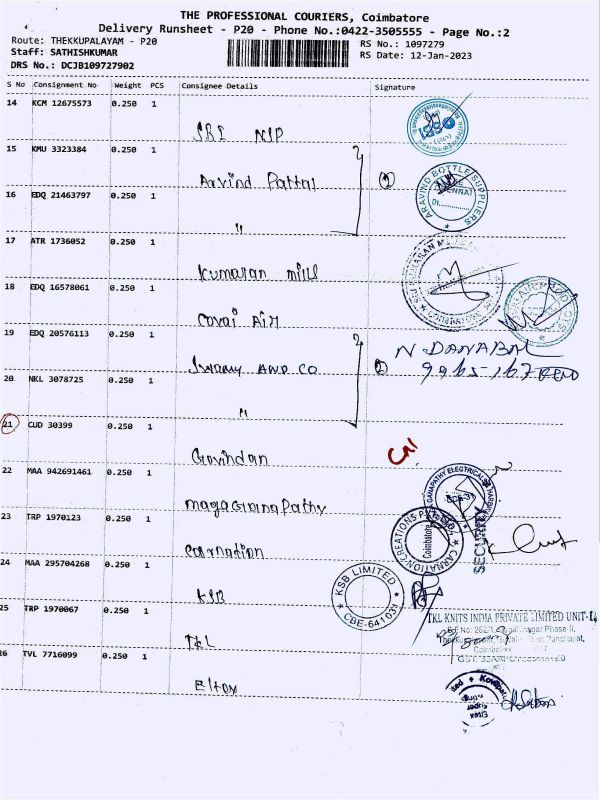 THE PROFESSIONAL COURIERS, Coimbatore
Delivery Runsheet - P20 - Phone No.:0422-3505555 - Page No.:2
Route: THEKKUPALAYAM - P20
Staff: SATHISHKUMAR
DRS No.: DCJB109727902
RS No.: 1097279
RS Date: 12-Jan-2023
S No Consignment No Weight PCS Consignee Details Signature
14 KCM 12675573 0.250 1
SBI
15 KMU 3323384 0.250 1
Arvind
ARAVIND BOTTLE SUPPLIERS
16 EDQ 21463797 0.250 1
"
17 ATR 1736052 0.250 1
Kumaran Mills
18 EDQ 16578061 0.250 1
Covai Air
19 EDQ 20576113 0.250 1
Swamy AND CO
N. DANABAL
20 NKL 3078725 0.250 1
"
21 CUD 30399 0.250 1
Govindan
22 MAA 942691461 0.250 1
GANAPATHY ELECTRICALS
SECURITY
23 TRP 1970123 0.250 1
Carnation
CARNATION CREATIONS
Coimbatore
24 MAA 295704268 0.250 1
KSB
KSB LIMITED
CBE-641031
25 TRP 1970067 0.250 1
TKL
TKL KNITS INDIA PRIVATE LIMITED UNIT-
26 TVL 7716099 0.250 1
Eltex